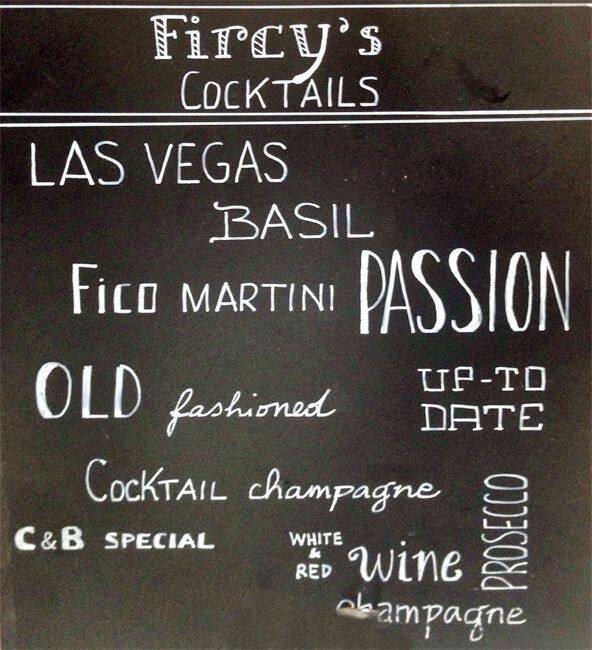 Fircy's
COCKTAILS
LAS VEGAS
BASIL
Fico MARTINI PASSION
OLD fashioned
UP-TO
DATE
COCKTAIL champagne
PROSECCO
C&B SPECIAL
WHITE
&
RED
wine
champagne